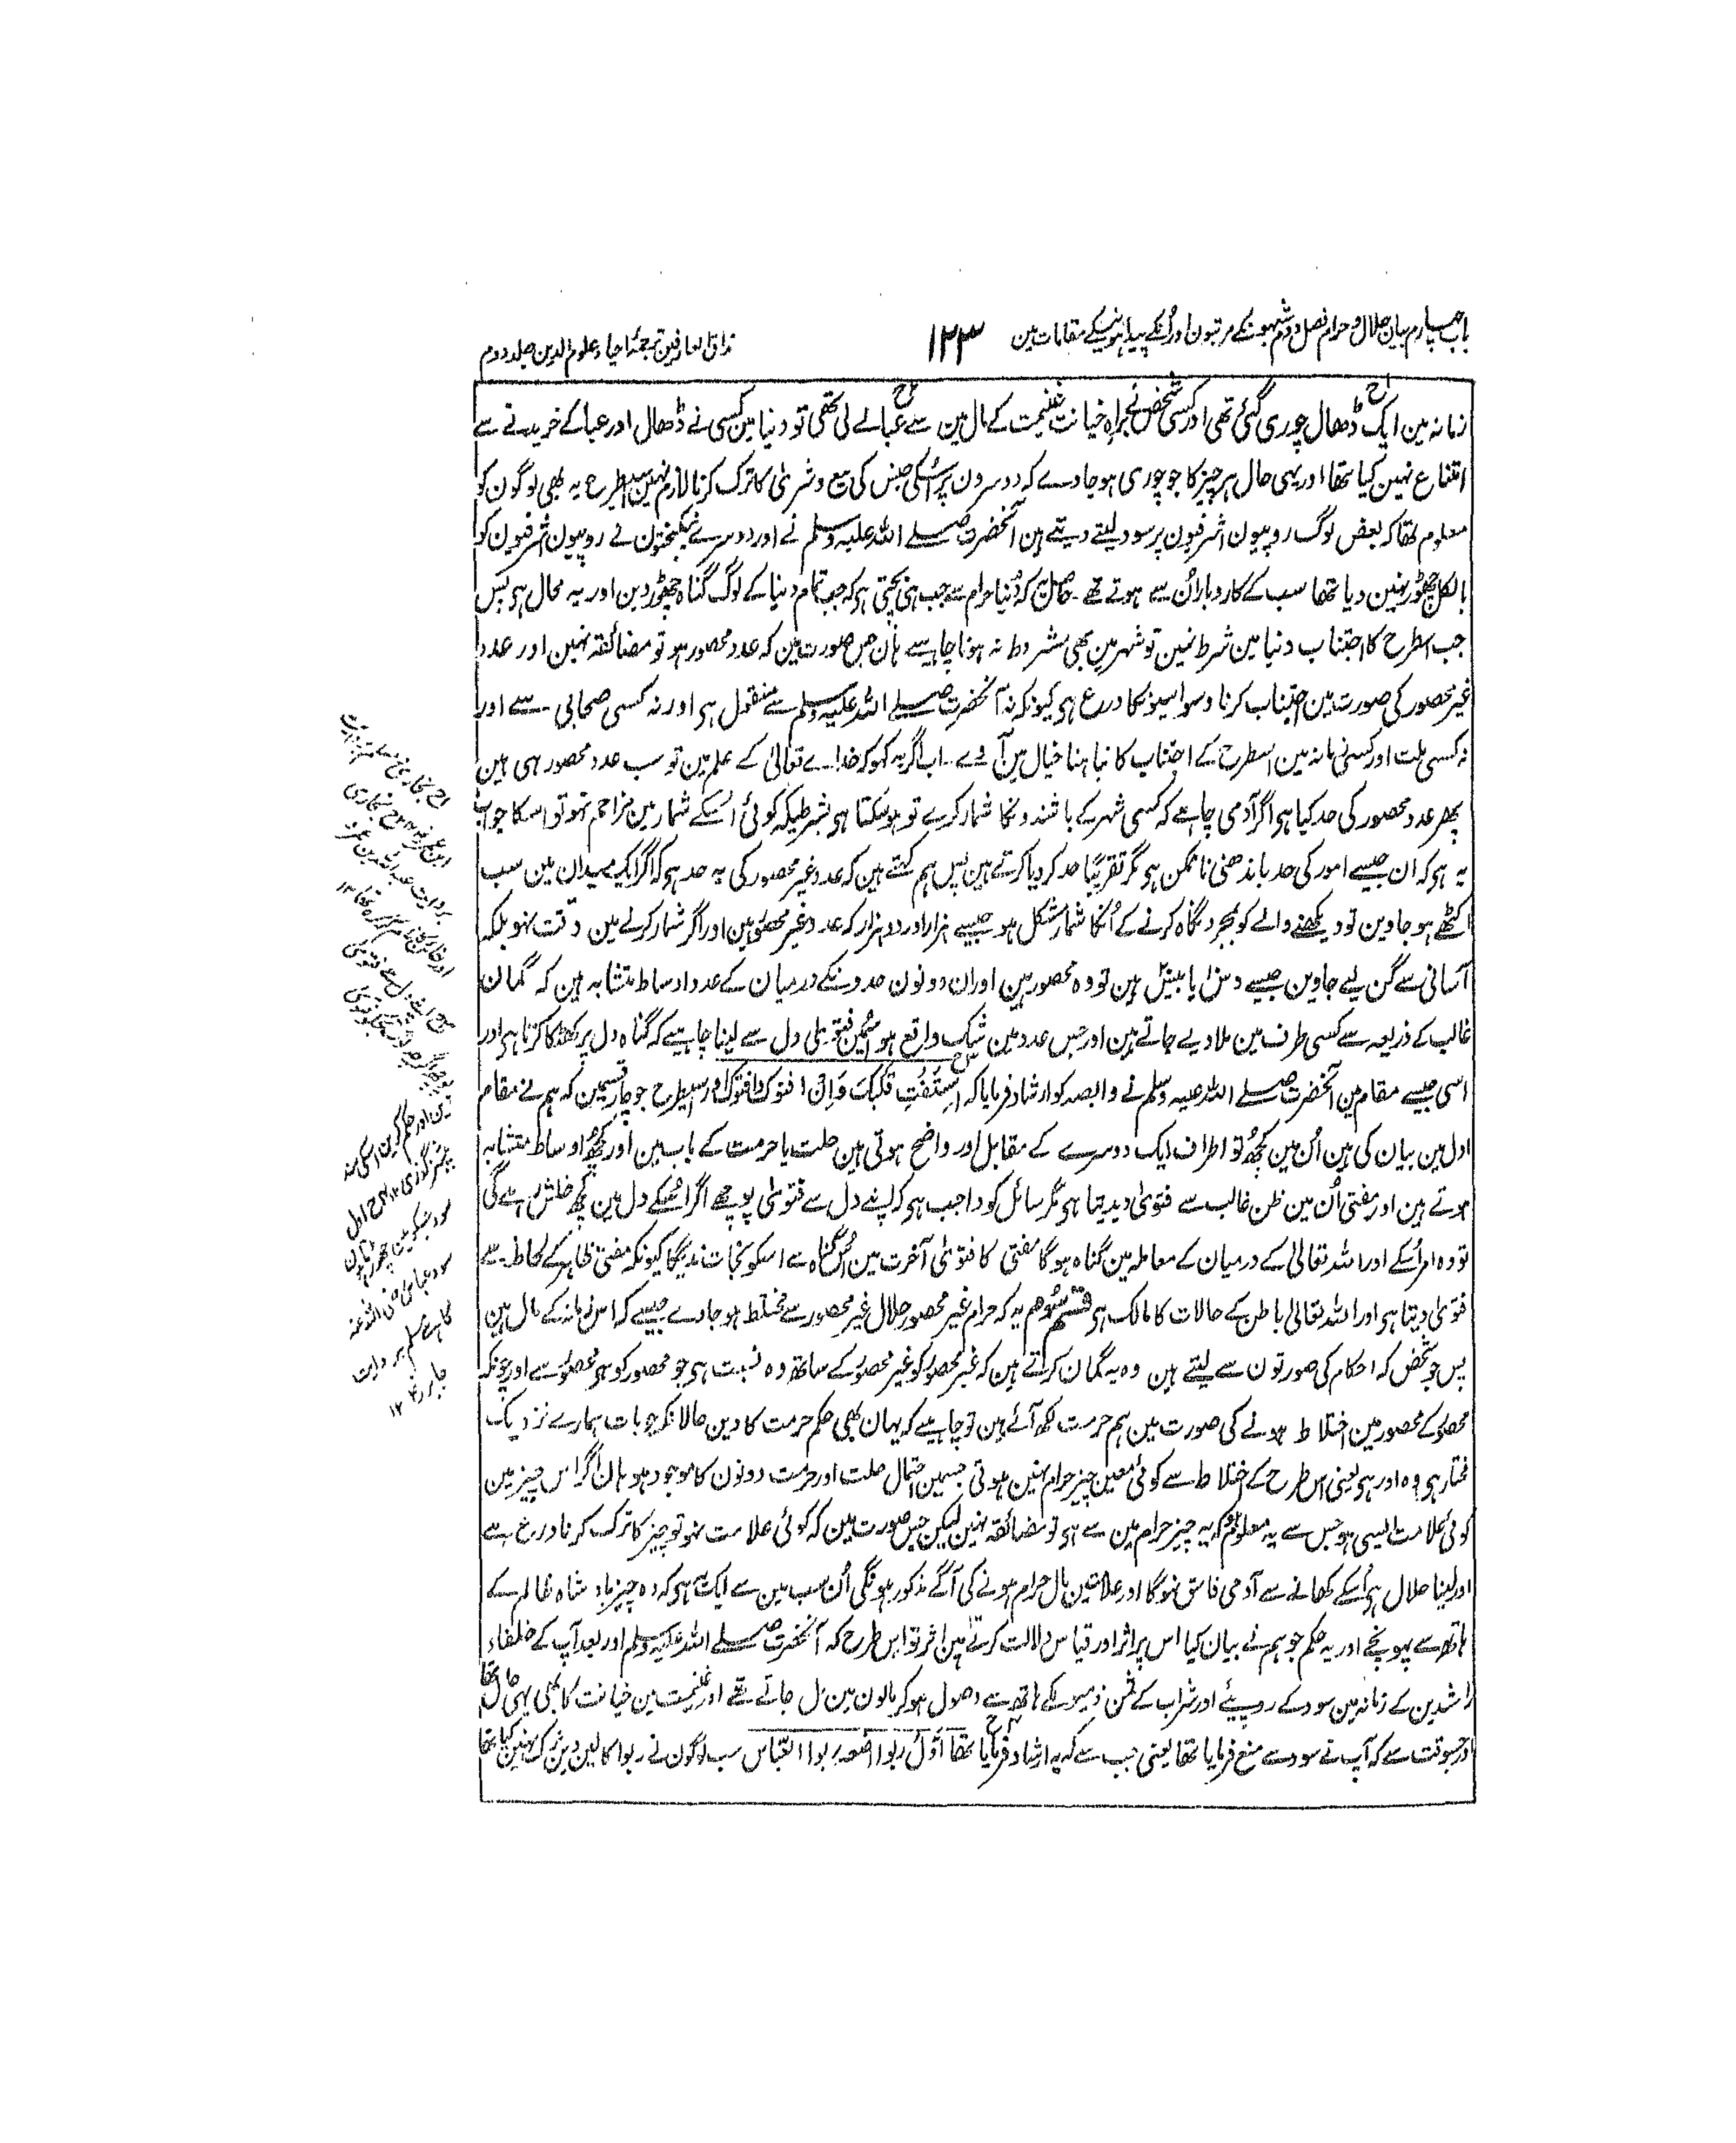 باب چہارم بیان حلال و حرام فصل دوم شبہونکے مرتبون اور اُنکے پیدا ہونیکے مقامات مین
۱۲۳
مذاق العارفین ترجمۂ احیاء علوم الدین جلد دوم
زمانہ مین ایک ڈھال چوری گئی تھی اور کسی شخص نے براہ خیانت غنیمت کے مال مین سے عبا لے لی تھی تو دنیا مین کسی نے ڈھال اور عبا کے خریدنے سے
امتناع نہین کیا تھا اور یہی حال ہر چیز کا جو چوری ہو جاوے کہ دوسرون پر اُسکی جنس کی بیع و شریٰ کا ترک کرنا لازم نہین اسیطرح یہ بھی لوگون کو
معلوم تھا کہ بعض لوگ روپیون اشرفیون پر سود لیتے دیتے ہین آنحضرت صلے اللہ علیہ وسلم نے اور دوسرے نیکبختون نے روپیون اشرفیون کو
بالکل چھوڑ نہین دیا تھا سب کے کاروبار اُن سے ہوتے تھے ۔ حاصل یہ کہ دُنیا حرام سے جب ہی بچتی ہو کہ جب تمام دنیا کے لوگ گناہ چھوڑ دین اور یہ محال ہو پس
جب اسطرح کا اجتناب دنیا مین شرط نہین تو شہر مین بھی مشروط نہ ہونا چاہیے ہان جس صورت مین کہ عدد محصور ہو تو مضائقہ نہین اور عدد
غیر محصور کی صورت مین اجتناب کرنا وسواسیونکا ورع ہو کیونکہ نہ آنحضرت صلے اللہ علیہ وسلم سے منقول ہو اور نہ کسی صحابی ۔ سے اور
نہ کسی ملت اور کسی زمانہ مین اسطرح کے اجتناب کا نباہنا خیال مین آوے ۔ اب اگر یہ کہو کہ خداے تعالیٰ کے علم مین تو سب عدد محصور ہی ہین
پھر عدد محصور کی حد کیا ہو اگر آدمی چاہے کہ کسی شہر کے باشندونکا شمار کرے تو ہوسکتا ہو بشرطیکہ کوئی اُسکے شمار مین مزاحم نہو تو اسکا جواب
یہ ہو کہ ان جیسے امور کی حد باندھنی ناممکن ہو مگر تقریبًا حد کر دیا کرتے ہین پس ہم کہتے ہین کہ عدد غیر محصور کی یہ حد ہو کہ اگر ایک میدان مین سب
اکٹھے ہو جاوین تو دیکھنے والے کو بمجرد نگاہ کرنے کے اُنکا شمار مشکل ہو جیسے ہزار اور دو ہزار کہ عدد غیر محصور ہین اور اگر شمار کرلے مین دقت نہو بلکہ
آسانی سے گن لیے جاوین جیسے دس یا بیس ہین تو وہ محصور ہین اور ان دونون حدونکے درمیان کے عدد اوساط متشابہ ہین کہ گمان
غالب کے ذریعہ سے کسی طرف مین ملا دیے جاتے ہین اور جس عدد مین شک واقع ہو اُسمین فتویٰ دل سے لینا چاہیے کہ گناہ دل پر کھٹکا کرتا ہو اور
اسی جیسے مقام مین آنحضرت صلے اللہ علیہ وسلم نے وابصہ کو ارشاد فرمایا کہ اِسْتَفْتِ قَلْبَكَ وَاِنْ اَفْتَوْكَ وَاَفْتَوْكَ اور اسیطرح جو چار قسمین کہ ہم نے مقام
اول مین بیان کی ہین اُن مین کچھ تو اطراف ایک دوسرے کے مقابل اور واضح ہوتی ہین حلت یا حرمت کے باب مین اور کچھ اوساط متشابہ
ہوتے ہین اور مفتی اُن مین ظن غالب سے فتویٰ دیدیتا ہو مگر سائل کو واجب ہو کہ اپنے دل سے فتویٰ پوچھے اگر اُسکے دل مین کچھ خلش رہے گی
تو وہ امر اُسکے اور اللہ تعالیٰ کے درمیان کے معاملہ مین گناہ ہوگا مفتی کا فتویٰ آخرت مین اُس گناہ سے اسکو نجات ندیگا کیونکہ مفتی ظاہر کے لحاظ سے
فتویٰ دیتا ہو اور اللہ تعالیٰ باطن کے حالات کا مالک ہو قسم سوم یہ کہ حرام غیر محصور حلال غیر محصور سے مختلط ہو جاوے جیسے کہ اس زمانہ کے مال ہین
پس جو شخص کہ احکام کی صورتون سے لیتے ہین وہ یہ گمان کرتے ہین کہ غیر محصور کو غیر محصور کے ساتھ وہ نسبت ہو جو محصور کو ہو محصور سے اور چونکہ
محصور کے محصور مین اختلاط ہونے کی صورت مین ہم حرمت لکھ آئے ہین تو چاہیے کہ یہان بھی حکم حرمت کا دین حالانکہ جو بات ہمارے نزدیک
مختار ہو وہ اور ہو یعنی اس طرح کے اختلاط سے کوئی معین چیز حرام نہین ہوتی جسمین احتمال حلت اور حرمت دونون کا موجود ہو ہان اگر اس چیز مین
کوئی علامت ایسی ہو جس سے یہ معلوم ہو کہ یہ چیز حرام مین سے ہو تو مضائقہ نہین لیکن جس صورت مین کہ کوئی علامت نہو تو چیز کا ترک کرنا ورع ہے
اور لینا حلال ہو اُسکے کھانے سے آدمی فاسق نہوگا اور علامتین مال حرام ہونے کی آگے مذکور ہونگی اُن سب مین سے ایک یہ ہو کہ وہ چیز بادشاہ ظالم کے
ہاتھ سے پہونچے اور یہ حکم جو ہم نے بیان کیا اس پر اثر اور قیاس دلالت کرتے ہین اثر تو اس طرح کہ آنحضرت صلے اللہ علیہ وسلم اور بعد آپ کے خلفاء
راشدین کے زمانہ مین سود کے روپیئے اور شراب کے ثمن ذمیون کے ہاتھ سے وصول ہوکر مالون مین مل جاتے تھے اور غنیمت مین خیانت کا بھی یہی حال تھا
اور جسوقت سے کہ آپ نے سود سے منع فرمایا تھا یعنی جب سے کہ یہ ارشاد فرمایا تھا اَوَّلُ رِبوا اَضَعُهٗ رِبوا العَبَّاس سب لوگون نے ربوا کا لین دین ترک نہین کیا تھا